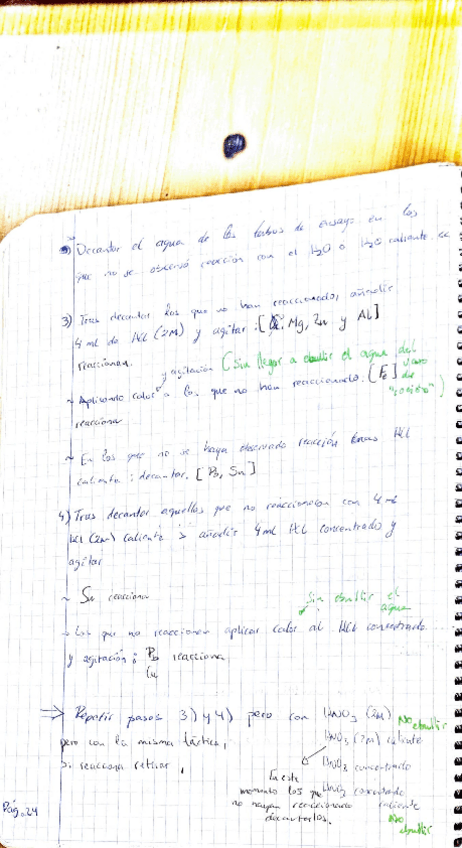 Decantar el agua de los tubos de ensayo en los
que no se observó reacción con el H2O o H2O caliente
3) Tras decantar los que no han reaccionado, añadir
4 ml de HCl (2M) y agitar: [ Mg, Zn y Al]
reaccionan.
y agitación (sin llegar a ebullir el agua del vaso
~ Aplicando calor a los que no han reaccionado. [Fe] de
reacciona
~ En los que no se haya observado reacción HCl
caliente: decantar. [Pb, Sn]
4) Tras decantar aquellos que no reaccionaron con 4 ml
HCl (2M) caliente añadir 4 ml HCl concentrado y
agitar
~ Sn reacciona
Sin ebullir el
agua
~ Los que no reaccionan aplicar calor al HCl concentrado
y agitación: Pb reacciona
⇒ Repetir pasos 3) y 4) pero con HNO3 (2M) No ebullir
pero con la misma táctica, HNO3 (2M) caliente
Si reacciona retirar, HNO3 concentrado
En este
momento los que HNO3 concentrado
no hayan reaccionado caliente
decantarlos. No
ebullir
Pág. 24